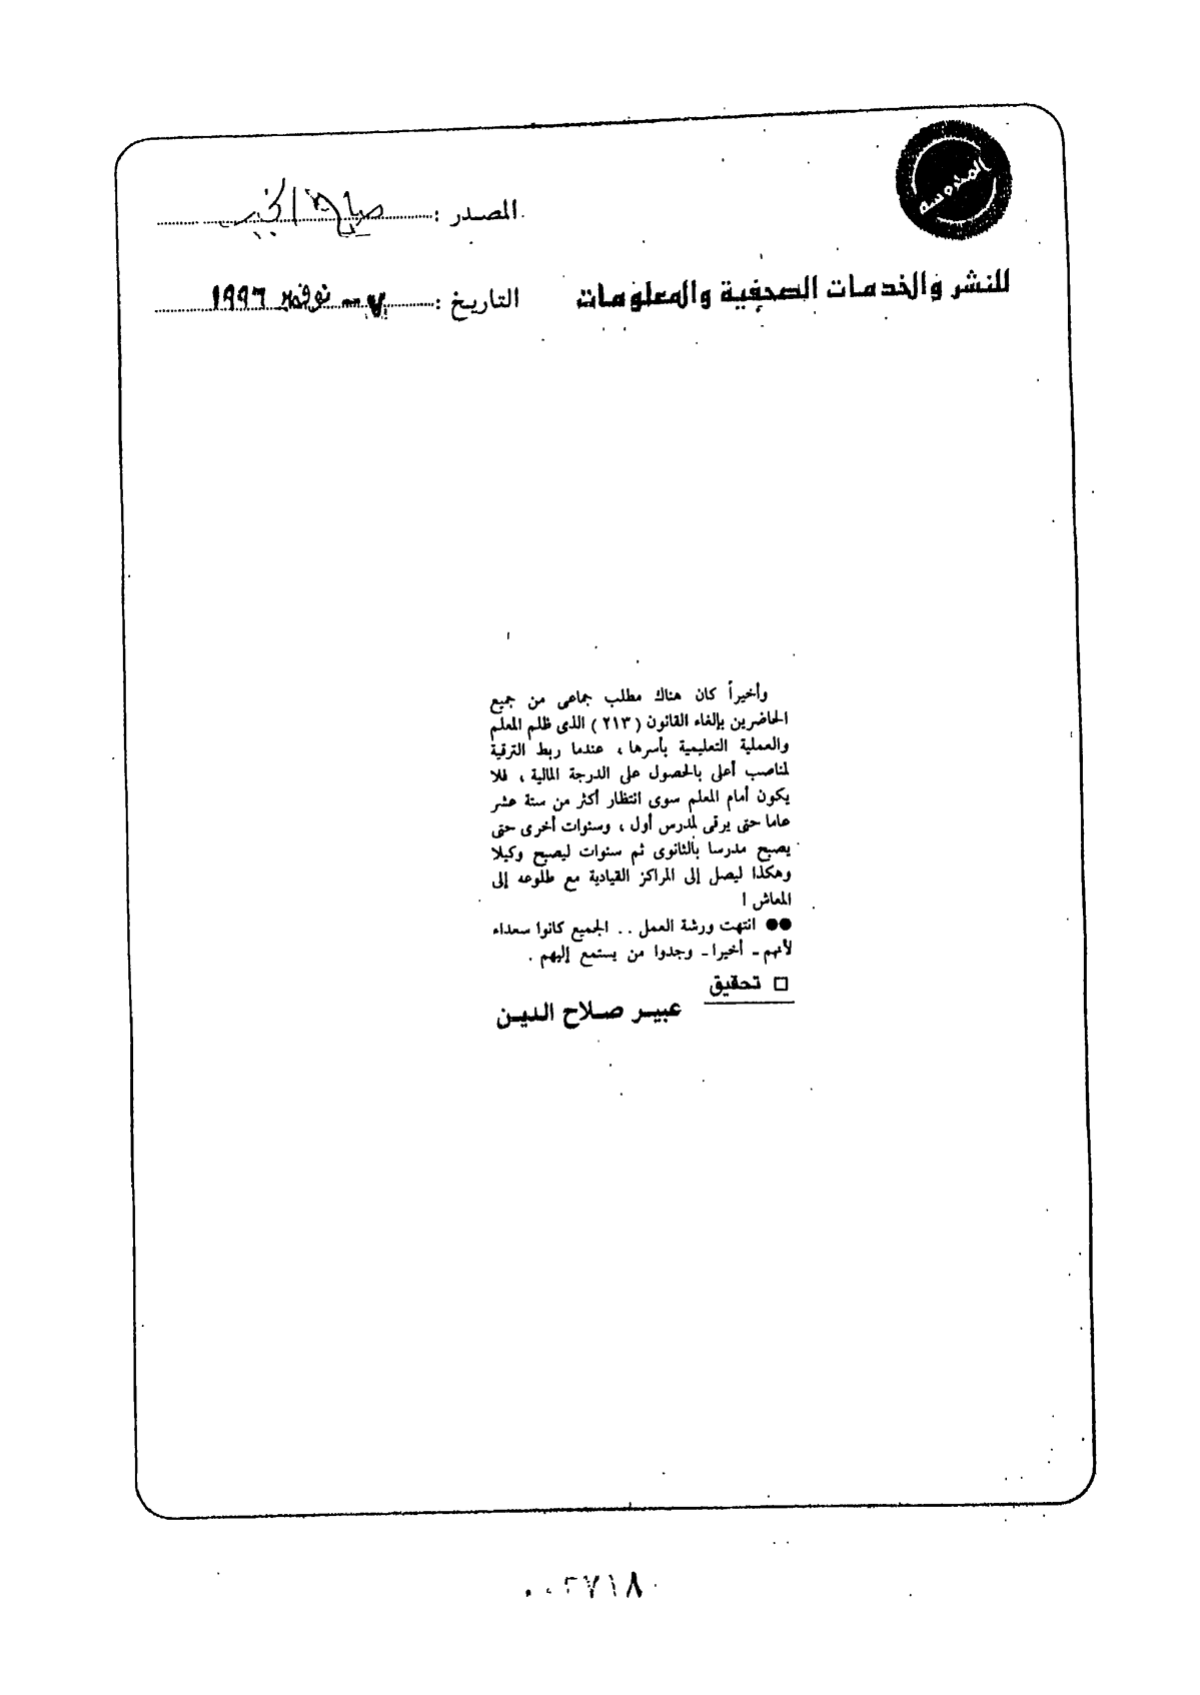 المحروسة
المصدر : صباح الخير
للنشر والخدمات الصحفية والمعلومات
التاريخ : ٧ - نوفمبر ١٩٩٦
وأخيراً كان هناك مطلب جماعى من جميع
الحاضرين بإلغاء القانون ( ٢١٣ ) الذى ظلم المعلم
والعملية التعليمية بأسرها ، عندما ربط الترقية
لمناصب أعلى بالحصول على الدرجة المالية ، فلا
يكون أمام المعلم سوى انتظار أكثر من ستة عشر
عاما حتى يرقى لمدرس أول ، وسنوات أخرى حتى
يصبح مدرسا بالثانوى ثم سنوات ليصبح وكيلا
وهكذا ليصل إلى المراكز القيادية مع طلوعه إلى
المعاش !
●● انتهت ورشة العمل .. الجميع كانوا سعداء
لأنهم ـ أخيرا ـ وجدوا من يستمع إليهم .
□ تحقيق
عبير صلاح الدين